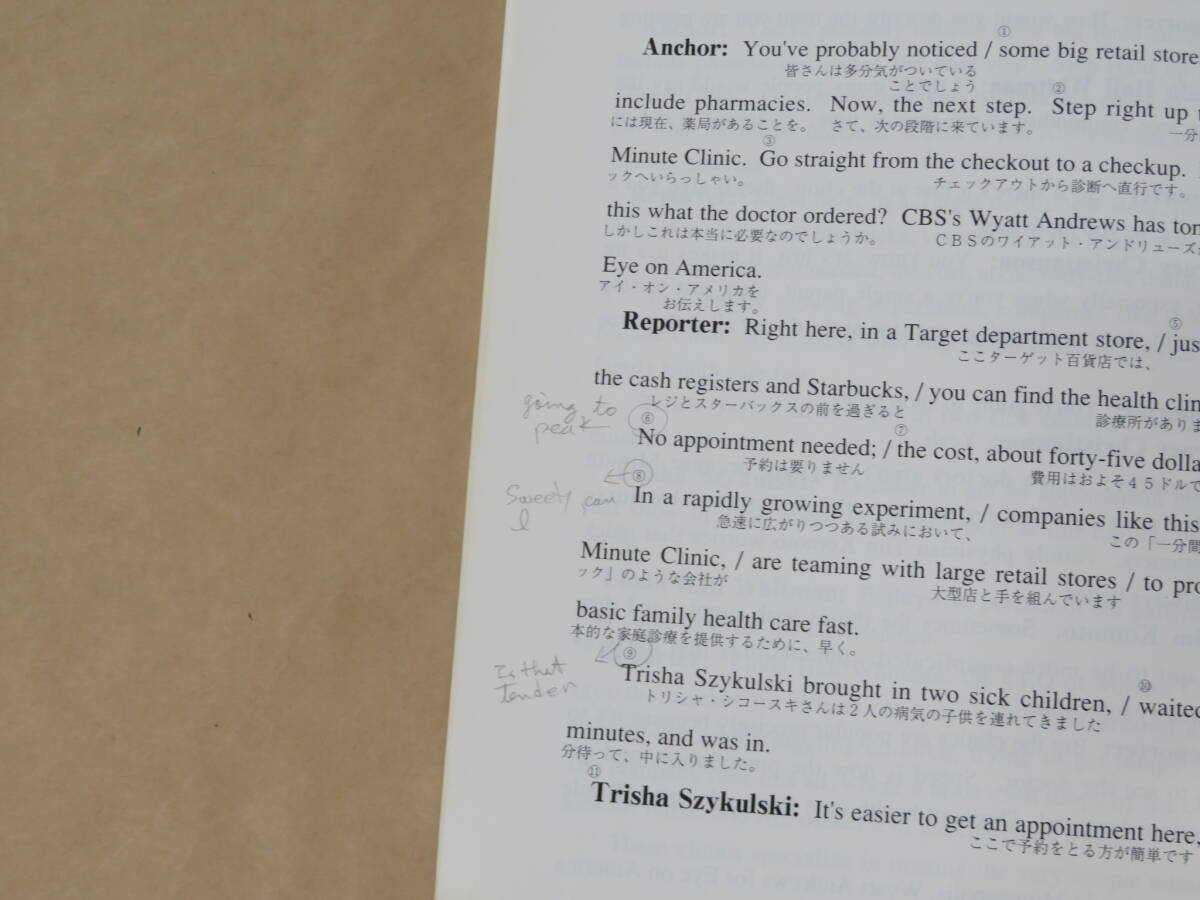 ①
Anchor: You've probably noticed / some big retail store
皆さんは多分気がついている
ことでしょう
②
include pharmacies. Now, the next step. Step right up
には現在、薬局があることを。 さて、次の段階に来ています。 一分
③
Minute Clinic. Go straight from the checkout to a checkup.
ックへいらっしゃい。 チェックアウトから診断へ直行です。
this what the doctor ordered? CBS's Wyatt Andrews has ton
しかしこれは本当に必要なのでしょうか。 ＣＢＳのワイアット・アンドリューズ
Eye on America.
アイ・オン・アメリカを
お伝えします。
⑤
Reporter: Right here, in a Target department store, / jus
ここターゲット百貨店では、
the cash registers and Starbucks, / you can find the health clin
レジとスターバックスの前を過ぎると 診療所がありま
going to
peak
⑥ ⑦
No appointment needed; / the cost, about forty-five dolla
予約は要りません 費用はおよそ４５ドルで
⑧
Sweety can
I
In a rapidly growing experiment, / companies like this
急速に広がりつつある試みにおいて、 この「一分間
Minute Clinic, / are teaming with large retail stores / to pro
ック」のような会社が 大型店と手を組んでいます
basic family health care fast.
本的な家庭診療を提供するために、早く。
Is that
tender
⑨ ⑩
Trisha Szykulski brought in two sick children, / waited
トリシャ・シコースキさんは２人の病気の子供を連れてきました
minutes, and was in.
分待って、中に入りました。
⑪
Trisha Szykulski: It's easier to get an appointment here,
ここで予約をとる方が簡単です